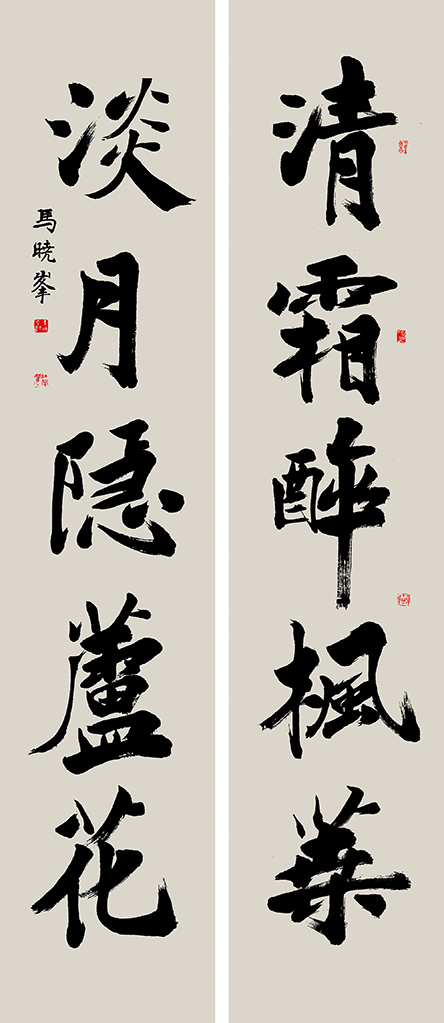 清霜醉楓葉
淡月隱蘆花
馬曉峯